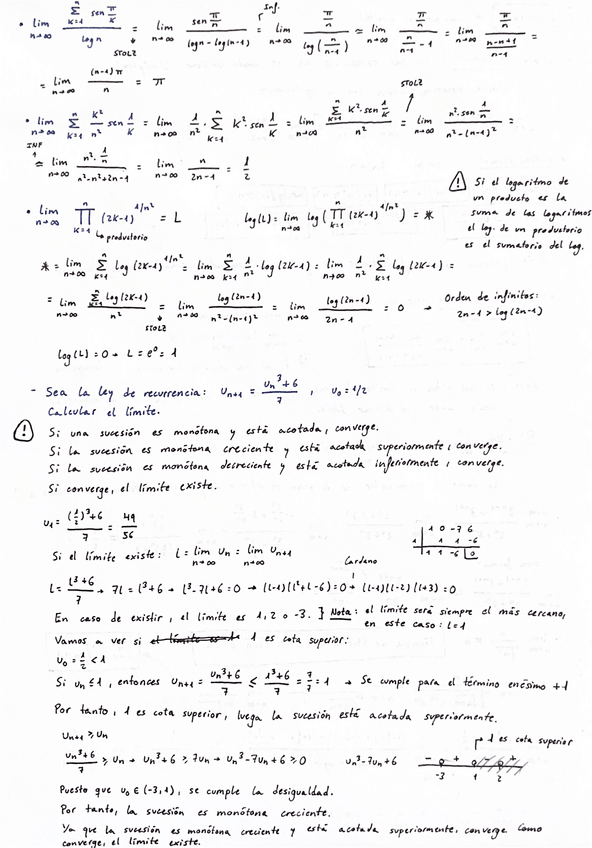 • lim n→∞ (Σ_{k=1}^{n} sen π/k) / log n = (STOLZ) lim n→∞ (sen π/n) / (log n − log(n−1)) = (Inf.) lim n→∞ (π/n) / (log(n/(n−1))) ≃ lim n→∞ (π/n) / (n/(n−1) − 1) = lim n→∞ (π/n) / ((n−n+1)/(n−1)) =
= lim n→∞ ((n−1)π)/n = π
• lim n→∞ Σ_{k=1}^{n} k²/n² sen 1/k = lim n→∞ 1/n² · Σ_{k=1}^{n} k² · sen 1/k = lim n→∞ (Σ_{k=1}^{n} k² sen 1/k) / n² = (STOLZ) lim n→∞ (n² · sen 1/n) / (n² − (n−1)²) =
(INF) ≃ lim n→∞ (n² · 1/n) / (n² − n² + 2n − 1) = lim n→∞ n/(2n−1) = 1/2
⚠ Si el logaritmo de
un producto es la
suma de los logaritmos
el log. de un productorio
es el sumatorio del log.
• lim n→∞ Π_{k=1}^{n} (2k−1)^{1/n²} = L log(L) = lim n→∞ log(Π_{k=1}^{n} (2k−1)^{1/n²}) = *
↳ productorio
* = lim n→∞ Σ_{k=1}^{n} log(2k−1)^{1/n²} = lim n→∞ Σ_{k=1}^{n} 1/n² · log(2k−1) = lim n→∞ 1/n² · Σ_{k=1}^{n} log(2k−1) =
= lim n→∞ (Σ_{k=1}^{n} log(2k−1)) / n² = (STOLZ) lim n→∞ log(2n−1) / (n² − (n−1)²) = lim n→∞ log(2n−1) / (2n−1) = 0 → Orden de infinitos:
2n−1 > log(2n−1)
log(L) = 0 → L = e⁰ = 1
- Sea la ley de recurrencia: u_{n+1} = (u_n³+6)/7 , u₀ = 1/2
Calcular el límite.
⚠ Si una sucesión es monótona y está acotada, converge.
Si la sucesión es monótona creciente y está acotada superiormente, converge.
Si la sucesión es monótona decreciente y está acotada inferiormente, converge.
Si converge, el límite existe.
u₁ = ((1/2)³+6)/7 = 49/56
Si el límite existe: l = lim n→∞ u_n = lim n→∞ u_{n+1}
1 0 -7 6
1 | 1 1 -6
1 1 -6 |0
Cardano
l = (l³+6)/7 → 7l = l³+6 → l³−7l+6 = 0 → (l−1)(l²+l−6) = 0 → (l−1)(l−2)(l+3) = 0
En caso de existir, el límite es 1, 2 o -3. } Nota: el límite será siempre el más cercano,
en este caso: l=1
Vamos a ver si el límite es 1 1 es cota superior:
u₀ = 1/2 < 1
Si u_n ≤ 1, entonces u_{n+1} = (u_n³+6)/7 ≤ (1³+6)/7 = 7/7 = 1 → Se cumple para el término enésimo +1
Por tanto, 1 es cota superior, luego la sucesión está acotada superiormente.
u_{n+1} ≥ u_n
→ 1 es cota superior
(u_n³+6)/7 ≥ u_n → u_n³+6 ≥ 7u_n → u_n³−7u_n+6 ≥ 0 u_n³−7u_n+6 − + − +
-3 1 2
Puesto que u₀ ∈ (-3,1), se cumple la desigualdad.
Por tanto, la sucesión es monótona creciente.
Ya que la sucesión es monótona creciente y está acotada superiormente, converge como
converge, el límite existe.